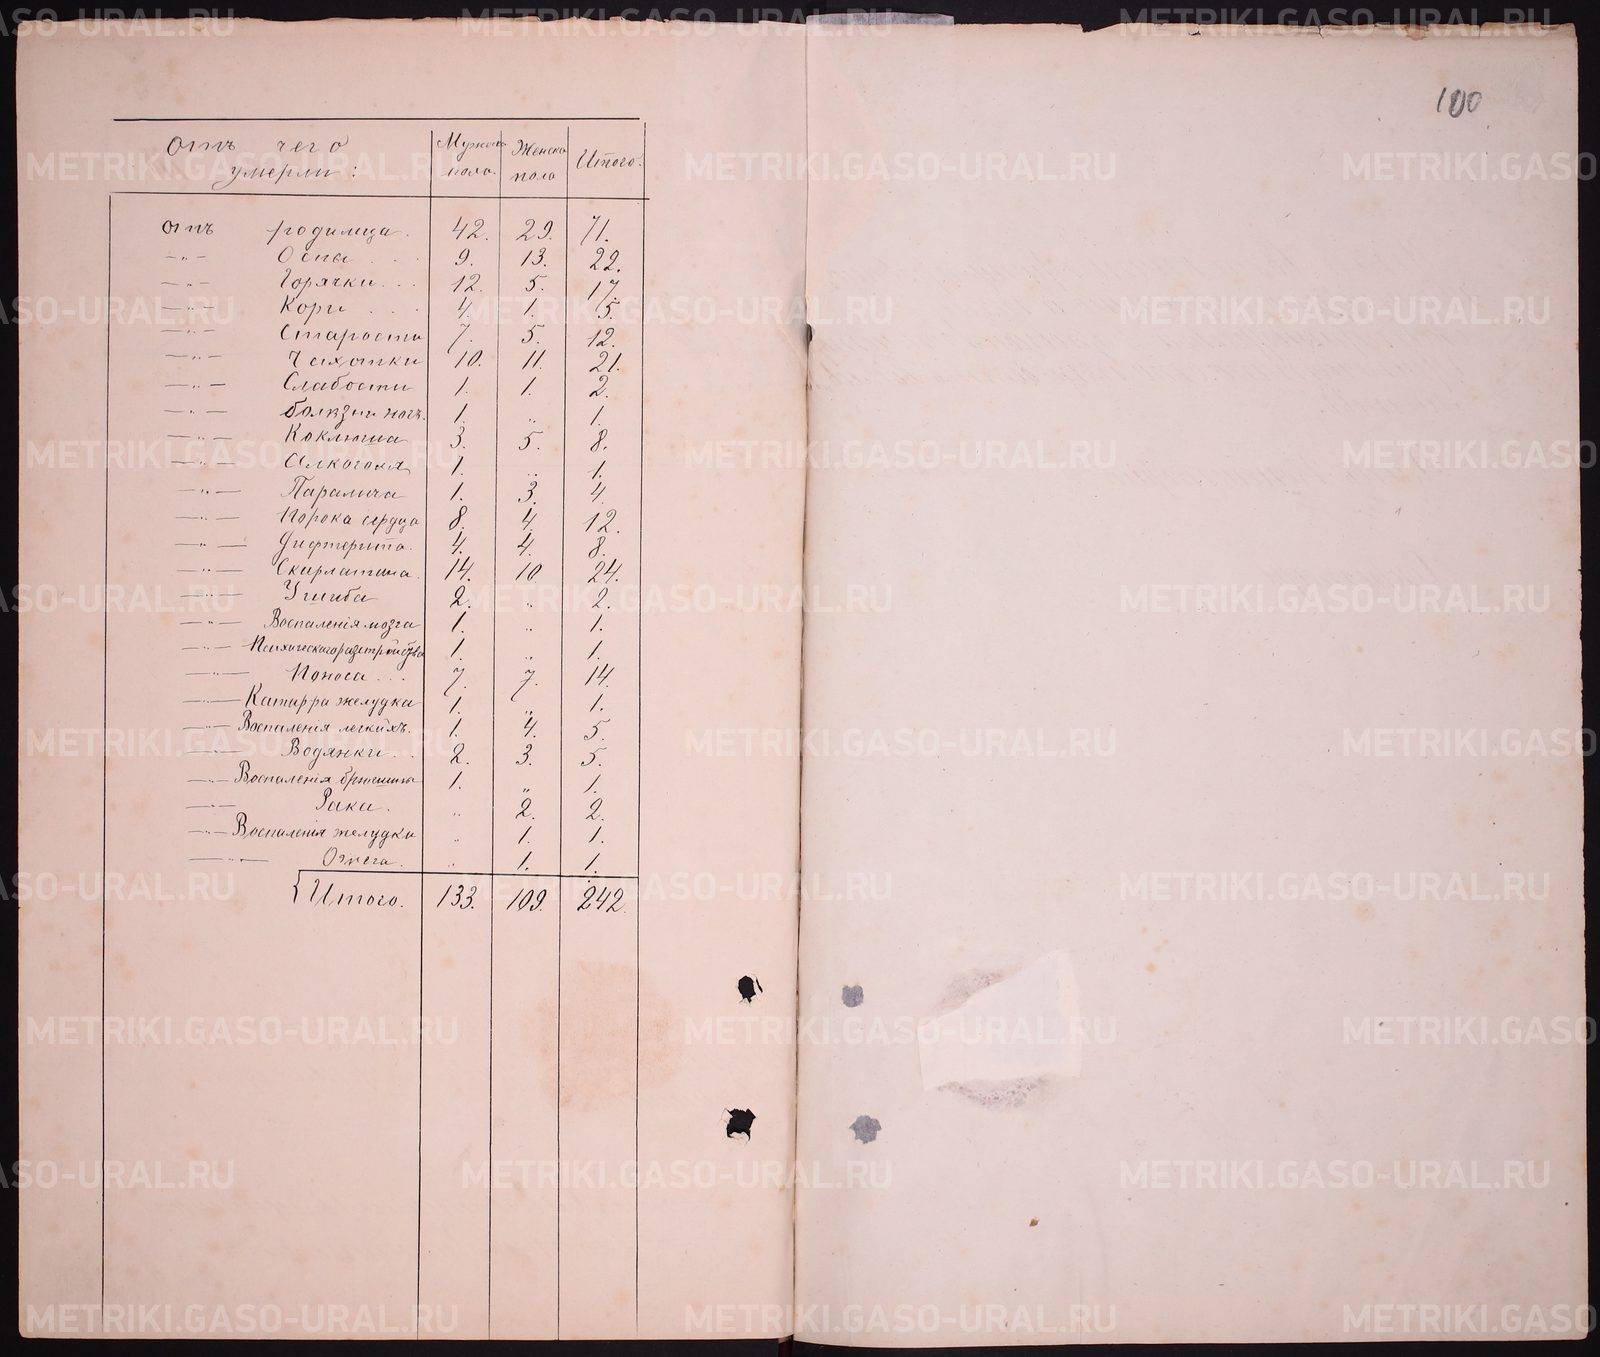 100
отъ чего умерли: Мужска пола. Женска пола Итого.
отъ родимца. 42. 29. 71.
—„— Оспы . . . 9. 13. 22.
—„— Горячки. . . 12. 5. 17.
—„— Кори . . . 4. 1. 5.
—„— Старости 7. 5. 12.
—„— Чахотки 10. 11. 21.
—„— Слабости 1. 1. 2.
—„— болѣзни ногъ. 1. „ 1.
—„— Коклюша 3. 5. 8.
—„— Алкоголя 1. „ 1.
—„— Паралича 1. 3. 4
—„— Порока сердца 8. 4. 12.
—„— Дифтерита. 4. 4. 8.
—„— Скарлатина. 14. 10 24.
—„— Ушиба 2. „ 2.
—„— Воспаленія мозга 1. „ 1.
—„— Психическаго разстройства 1. „ 1.
—„— Поноса . . . 7. 7. 14.
—„— Катарра желудка 1. „ 1.
—„— Воспаленія легкихъ. 1. 4. 5.
—„— Водянки . . 2. 3. 5.
—„— Воспаленія брюшины 1. „ 1.
—„— Рака . „ 2. 2.
—„— Воспаленія желудка „ 1. 1.
—„— Ожега. „ 1. 1.
Итого. 133. 109. 242.
METRIKI.GASO-URAL.RU